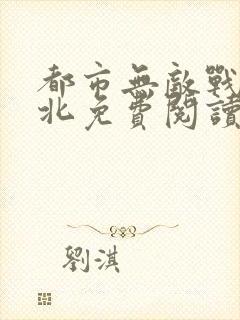 都市無敵戰
北免費閱讀
劉淇